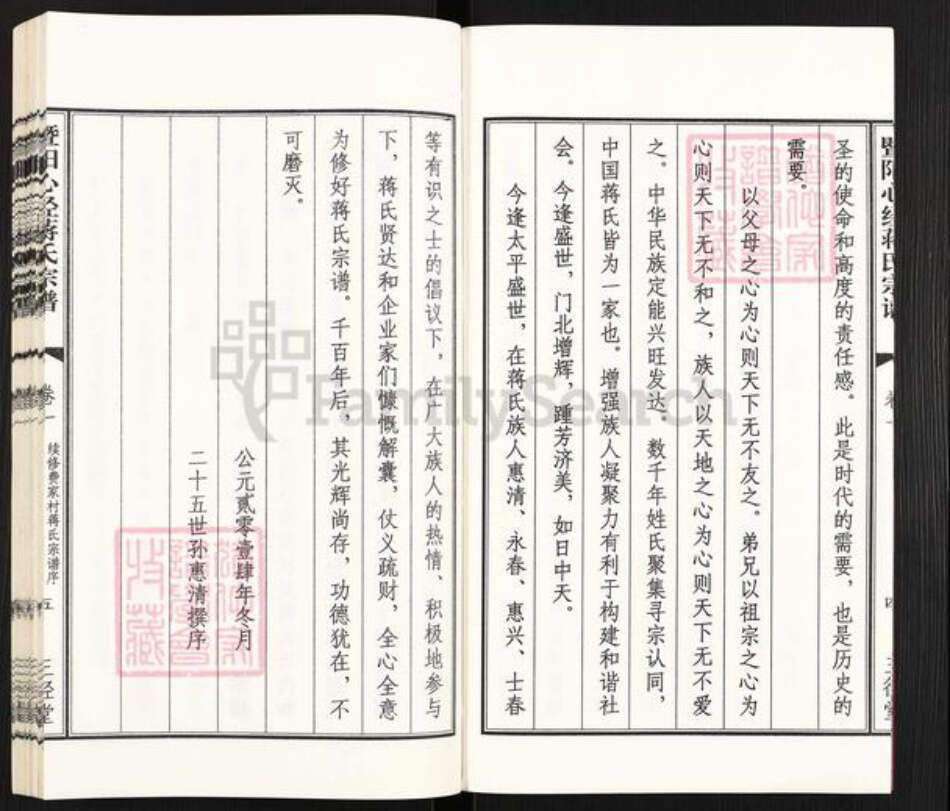 圣的使命和高度的责任感。此是时代的需要，也是历史的
需要。
以父母之心为心则天下无不友之。弟兄以祖宗之心为
心则天下无不和之，族人以天地之心为心则天下无不爱
之。中华民族定能兴旺发达，数千年姓氏聚集寻宗认同，
中国蒋氏皆为一家也。增强族人凝聚力有利于构建和谐社
会。今逢盛世，门北增辉，踵芳济美，如日中天。
今逢太平盛世，在蒋氏族人惠清、永春、惠兴、士春
四
等有识之士的倡议下，在广大族人的热情、积极地参与
下，蒋氏贤达和企业家们慷慨解囊，仗义疏财，全心全意
为修好蒋氏宗谱。千百年后，其光辉尚存，功德犹在，不
可磨灭。
公元贰零壹肆年冬月
二十五世孙惠清撰序
暨阳心经蒋氏宗谱
卷一
续修费家村蒋氏宗谱序
五
三径堂
FamilySearch